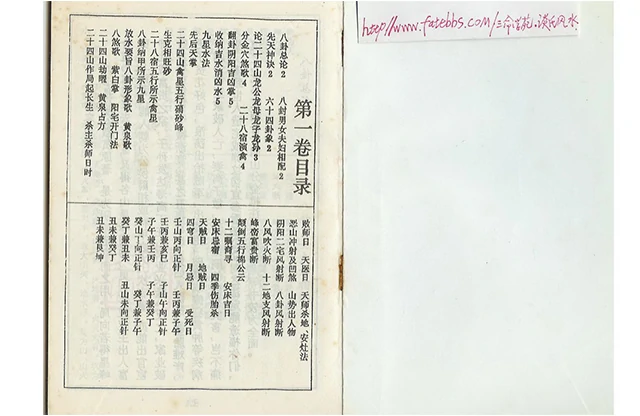 http://www.fatebbs.com/三命
第一卷目录
八卦总论2 八封男女夫妇相配2
先天神诀2 六十四卦象2
论二十四山龙公龙母龙子龙孙3
分金穴煞歌4 二十八宿演禽4
翻卦阴阳吉凶掌5
收纳吉水消凶水5
九星水法
先后天掌
二十四山禽星五行硝砂峰
生克相旺砂
二十八宿五行所示禽星
八卦纳甲所示九星
放水要旨八卦形象歌 黄泉歌
八煞歌 紫白掌 阳宅开门法
二十四山劫曜 黄泉占方
二十四山作局起长生 杀主杀师日时
败师日 天医日 天师杀地 安灶法
恶山冲射及凹煞 山势出人物
阴阳二宅风射断 八卦风射断
八风吹火断 十二地支风射断
峰峦富贵断
颠倒五行杨公云
十二 安床吉日
安床忌宿 四季伤胎杀
天贼日 地贼日
四穷日 月忌日 受死日
壬山丙向正针 壬丙兼子午
壬丙兼亥巳 子山午向正针
子午兼壬丙 子午兼癸丁
癸山丁向正针 癸丁兼子午
癸丁兼丑未 丑山未向正针
丑未兼癸丁
丑未兼艮坤